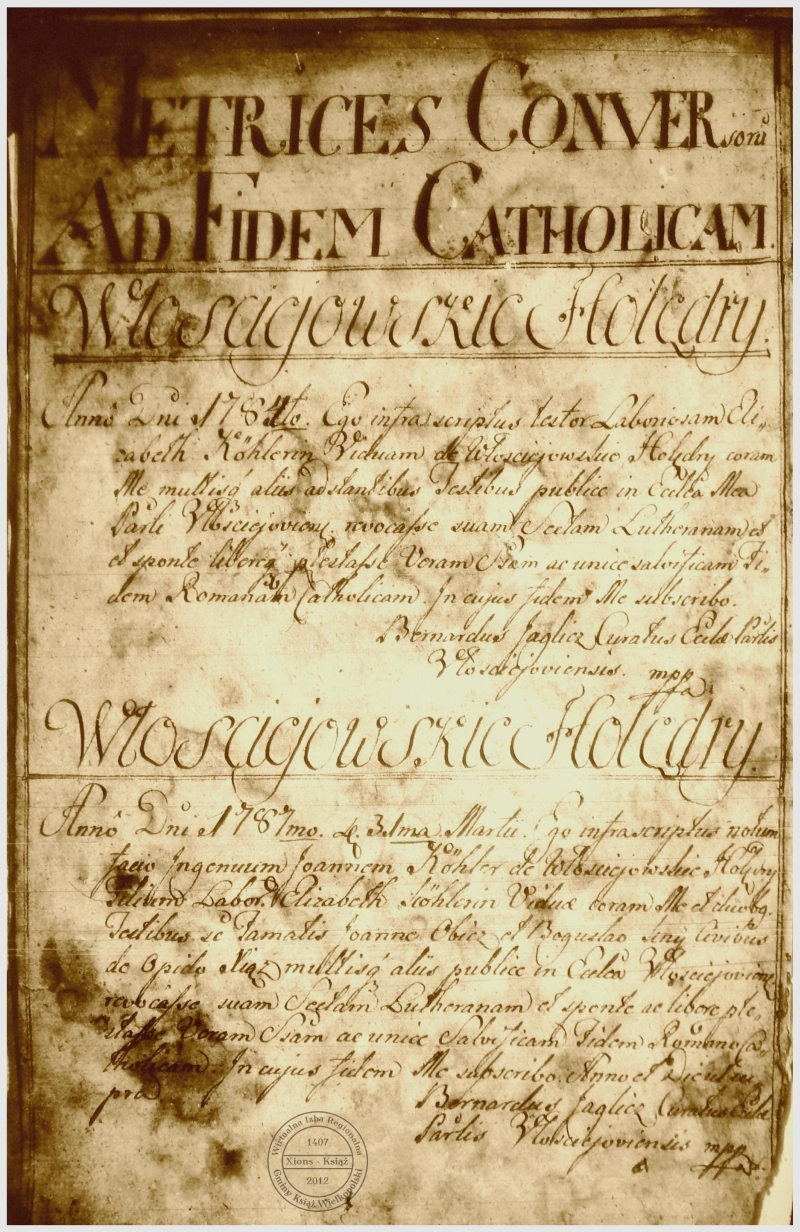 METRICES CONVERsorũ
AD FIDEM CATHOLICAM.
Włoscięjowskie Holędry.
Anno Dni 1784to. Ego infra scriptus testor Laboriosam Eli„
zabeth Köhlerin Viduam de Włosciejowskie Holędry coram
Me multisq́ aliis adstantibus Testibus publice in Ecclea Mea
Parli Włościejovien. revocasse suam Sectam Lutheranam et
et sponte libereq́ ptestasse Veram Ssam ac unice salvificam Fi„
dem Romanam Catholicam. In cujus fidem Me subscribo.
Bernardus Jaglicz Curatus Eccle Parlis
Włosciejoviensis. mpp
Włoscięjowskie Holędry.
Anno Dni 1787mo. d. 31ma Martii. Ego infrascriptus notum
facio Ingenuum Joannem Köhler de Włosciejowskie Holędry
Filium Labor. Elizabeth Köhlerin Viduæ coram Me et duobg.
Testibus sc Famatis Joanne Obicz et Boguslao Civibus
de Opido Xiąz multisq́ aliis publice in Ecclea Włosciejovien
revocasse suam Sectam Lutheranam et sponte ac libere pte„
stasse Veram Ssam ac unice Salvificam Fidem Romano Ca„
tholicam. In cujus fidem Me subscribo. Anno et Die ut su
pra
Bernardus Jaglicz Curatus Eccle
Parlis Włosciejoviensis mpp
Wirtualna Izba Regionalna
1407
Xions - Książ
2012
Gminy Książ Wielkopolski